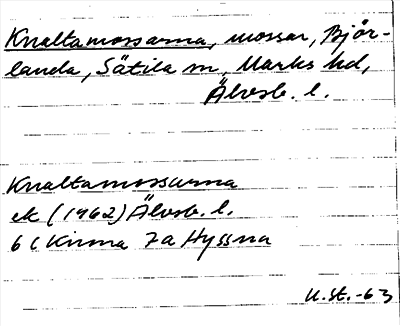 Knaltamossarna, mossar, Björ-
landa, Sätila sn, Marks hd,
Älvsb. l.
Knaltamossarna
ek (1962) Älvsb. l.
6 C Kinna 7a Hyssna
U. St. -63